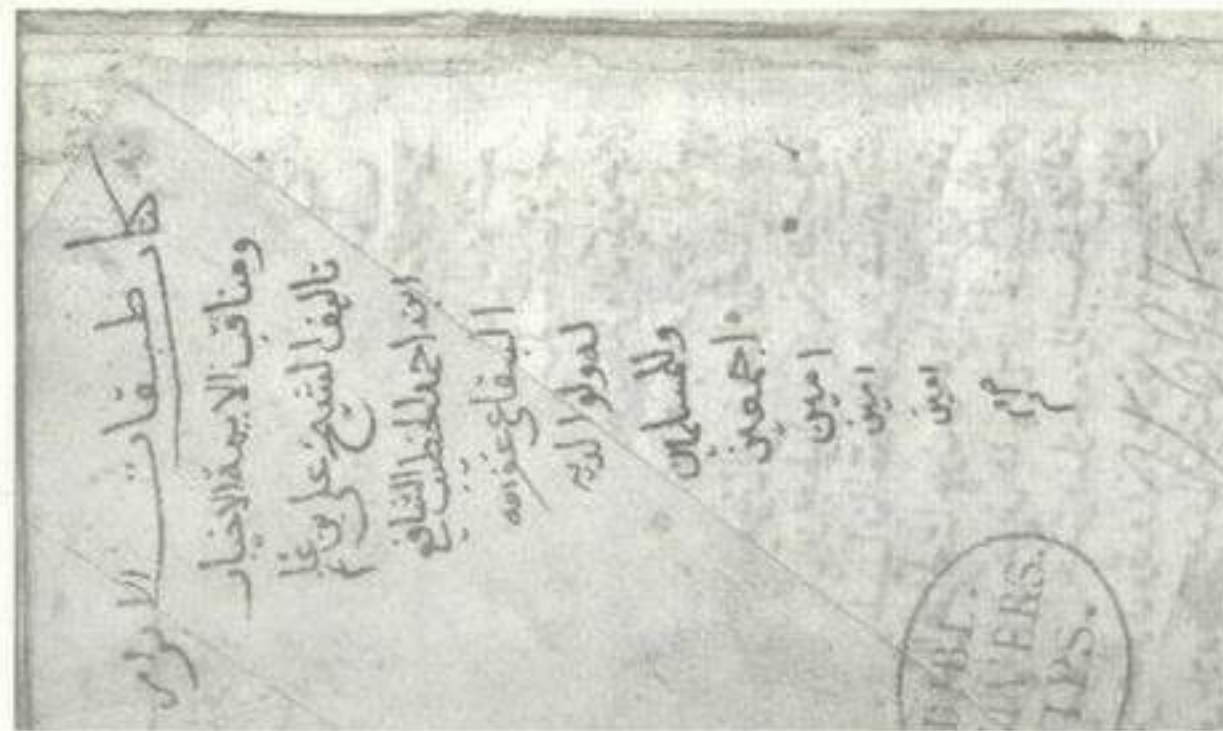 كتاب طبقات الابرار
ومناقب الايمة الاخيار
تاليف الشيخ علي بن
ابن احمد الخطيب الشافعي
البقاعي غفر الله
له ولوالديه
وللمسلمين
اجمعين
امين
امين
امين
م
BIBL.
UNIVERS.
LIPS.